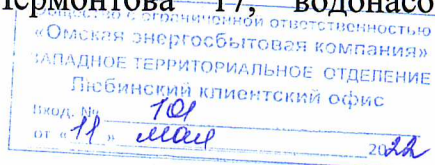 Лермонтова 17, водонасо
Общество с ограниченной ответственностью
«Омская энергосбытовая компания»
ЗАПАДНОЕ ТЕРРИТОРИАЛЬНОЕ ОТДЕЛЕНИЕ
Любинский клиентский офис
Вход. № 101
от «11» мая 2022